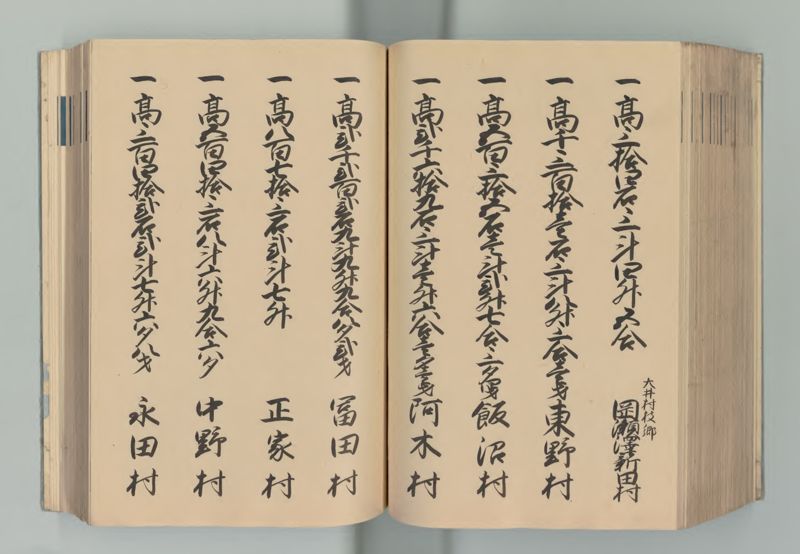 一 高三拾四石三斗四升五合 大井村枝郷
岡瀬澤新田村
一 高千三百拾壱石三斗八升三合 東野村
一 高五百三拾六石壱斗弐升七合三夕 飯沼村
一 高弐千六拾九石三斗壱升六合 阿木村
一 高弐千弐百弐石九斗九升九合八夕弐才 冨田村
一 高八百七拾三石弐斗七升 正家村
一 高六百四拾三石八斗六升九合六夕 中野村
一 高三百四拾弐石弐斗七升六夕八才 永田村